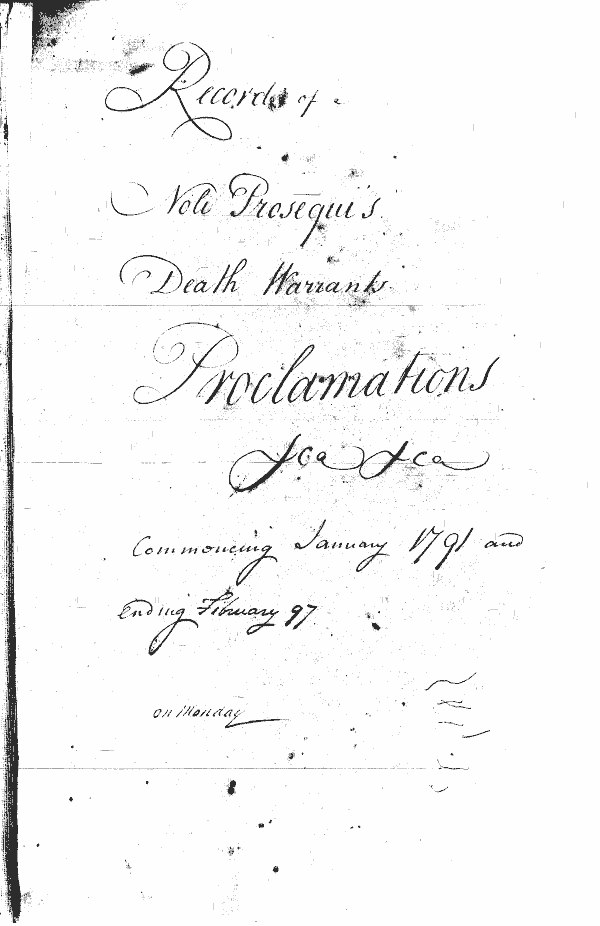 Records of
Noli Prosequi's
Death Warrants
Proclamations
&ca &ca
Commencing January 1791 and
Ending February 97
on Monday